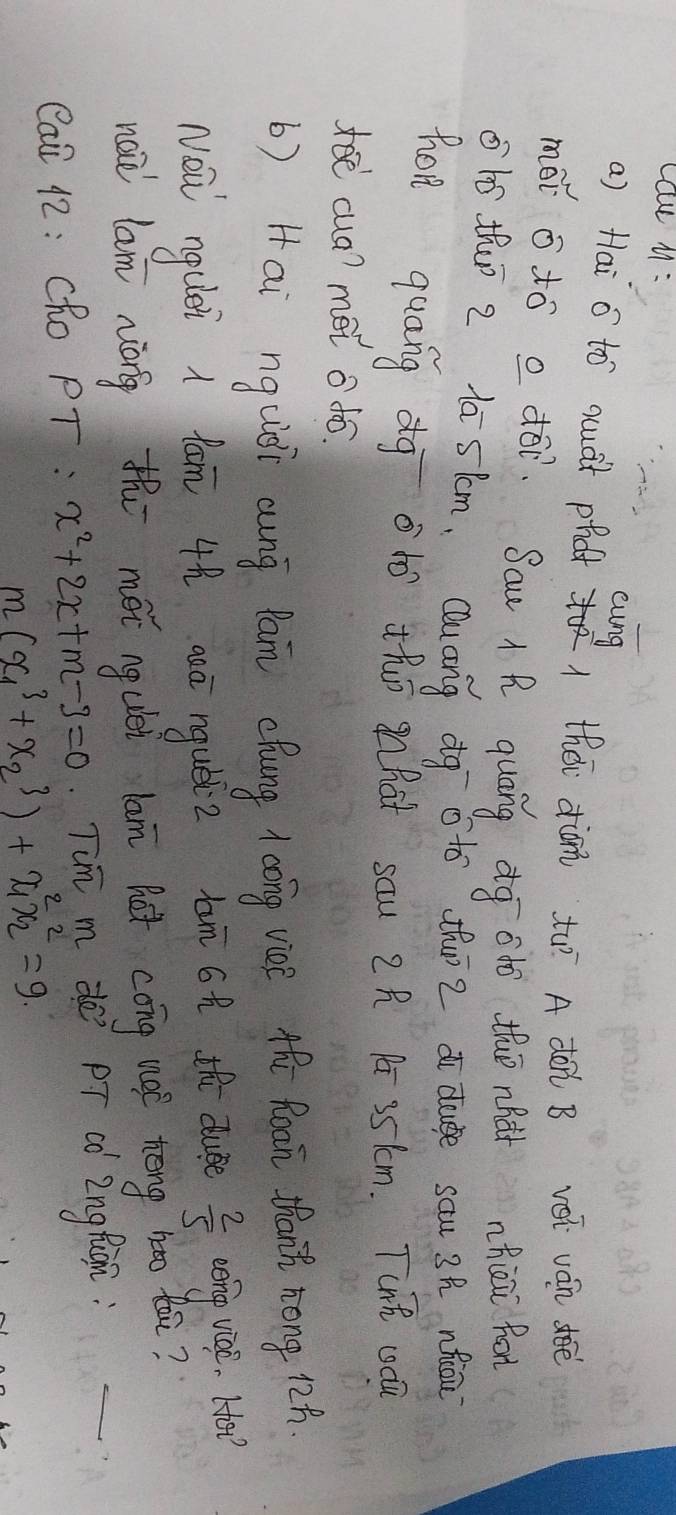 Câu 11:
a) Hai ô tô xuất phát cùng 1 thời điểm từ A đến B với vận tốc
mỗi ô tô o đổi. Sau 1h quãng đg ô tô thứ nhất nhiều hơn
ô tô thứ 2 là 5km, quãng đg ô tô thứ 2 đi được sau 3h nhiều
hơn quãng đg ô tô thứ nhất sau 2h là 35km. Tính vận
tốc của mỗi ô tô.
b) Hai người cùng làm chung 1 công việc thì hoàn thành trong 12h.
Nếu người 1 làm 4h và người 2 làm 6h thì được 2/5 công việc. Hỏi
nếu làm riêng thì mỗi người làm hết công việc trong bao lâu?
Câu 12: Cho PT: x² + 2x + m - 3 = 0. Tìm m để PT có 2 nghiệm:
m(x₁³ + x₂³) + x₁²x₂² = 9.